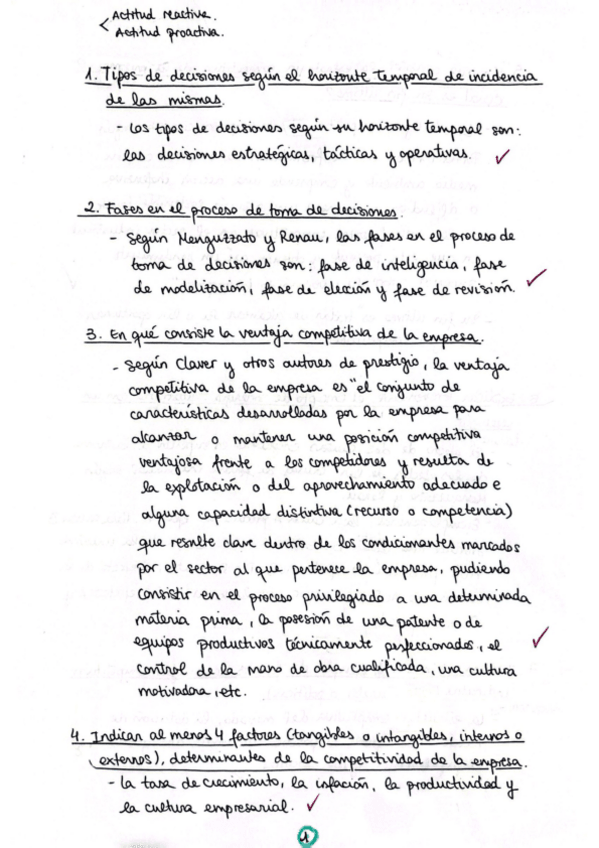 < Actitud reactiva.
Actitud proactiva.
1. Tipos de decisiones según el horizonte temporal de incidencia
de las mismas.
- Los tipos de decisiones según su horizonte temporal son:
las decisiones estratégicas, tácticas y operativas. ✓
2. Fases en el proceso de toma de decisiones.
- Según Menguzzato y Renau, las fases en el proceso de
toma de decisiones son: fase de inteligencia, fase
de modelización, fase de elección y fase de revisión. ✓
3. En qué consiste la ventaja competitiva de la empresa.
- Según Claver y otros autores de prestigio, la ventaja
competitiva de la empresa es "el conjunto de
características desarrolladas por la empresa para
alcanzar o mantener una posición competitiva
ventajosa frente a los competidores y resulta de
la explotación o del aprovechamiento adecuado e
alguna capacidad distintiva (recurso o competencia)
que resulte clave dentro de los condicionantes marcados
por el sector al que pertenece la empresa, pudiendo
consistir en el proceso privilegiado a una determinada
materia prima, la posesión de una patente o de
equipos productivos técnicamente perfeccionados, el ✓
control de la mano de obra cualificada, una cultura
motivadora, etc.
4. Indicar al menos 4 factores (tangibles o intangibles, internos o
externos), determinantes de la competitividad de la empresa.
- La tasa de crecimiento, la inflación, la productividad y
la cultura empresarial. ✓
1